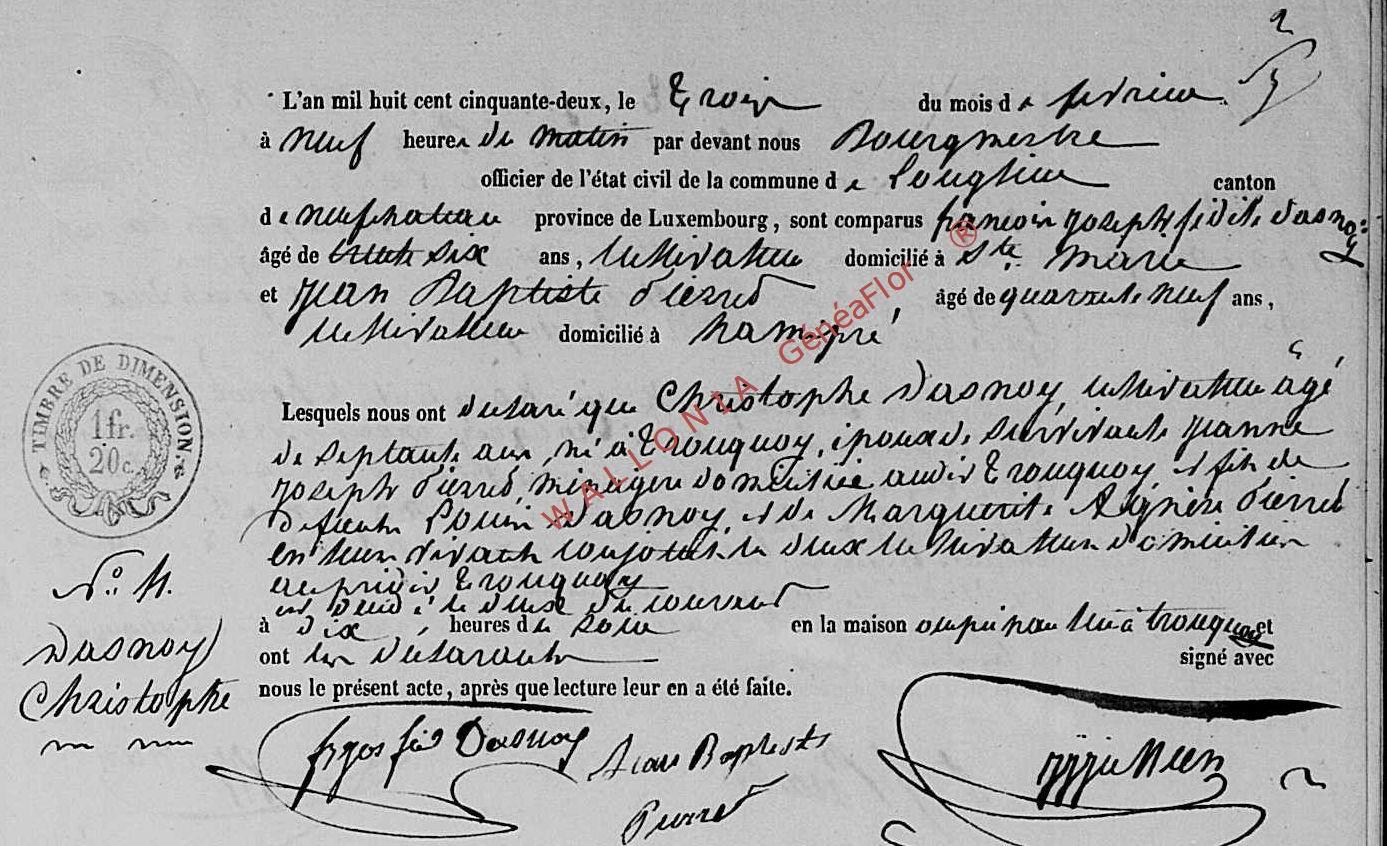 2
L'an mil huit cent cinquante-deux, le Trois du mois de fevrier
à Neuf heures du matin par devant nous Bourgmestre
officier de l'état civil de la commune de Longlier canton
de Neufchateau province de Luxembourg, sont comparus francois joseph fidele Dasnoy
âgé de trente six ans, cultivateur domicilié à Ste Marie
et Jean Baptiste Pierret âgé de quarante Neuf ans,
cultivateur domicilié à Namipré
Lesquels nous ont declaré que Christophe Dasnoy, cultivateur âgé
de septante ans, né à Tronquoy, epoux de survivante jeanne
joseph Pierret, menagere domiciliée audit Tronquoy et fils de
defunts Louis Dasnoy, et de Marguerite Agnès Pierret
en leur vivant conjoints les deux cultivateurs domiciliés
au predit Tronquoy
est decedé le deux du courant
à dix heures du soir en la maison occupée par lui à tronquoy et
ont les declarants signé avec
nous le présent acte, après que lecture leur en a été faite.
TIMBRE DE DIMENSION.
1 fr.
20 c.
No. 4.
Dasnoy
Christophe
Dasnoy
Jean Baptiste
Pierret
WALLONIA GénéaFlor ®